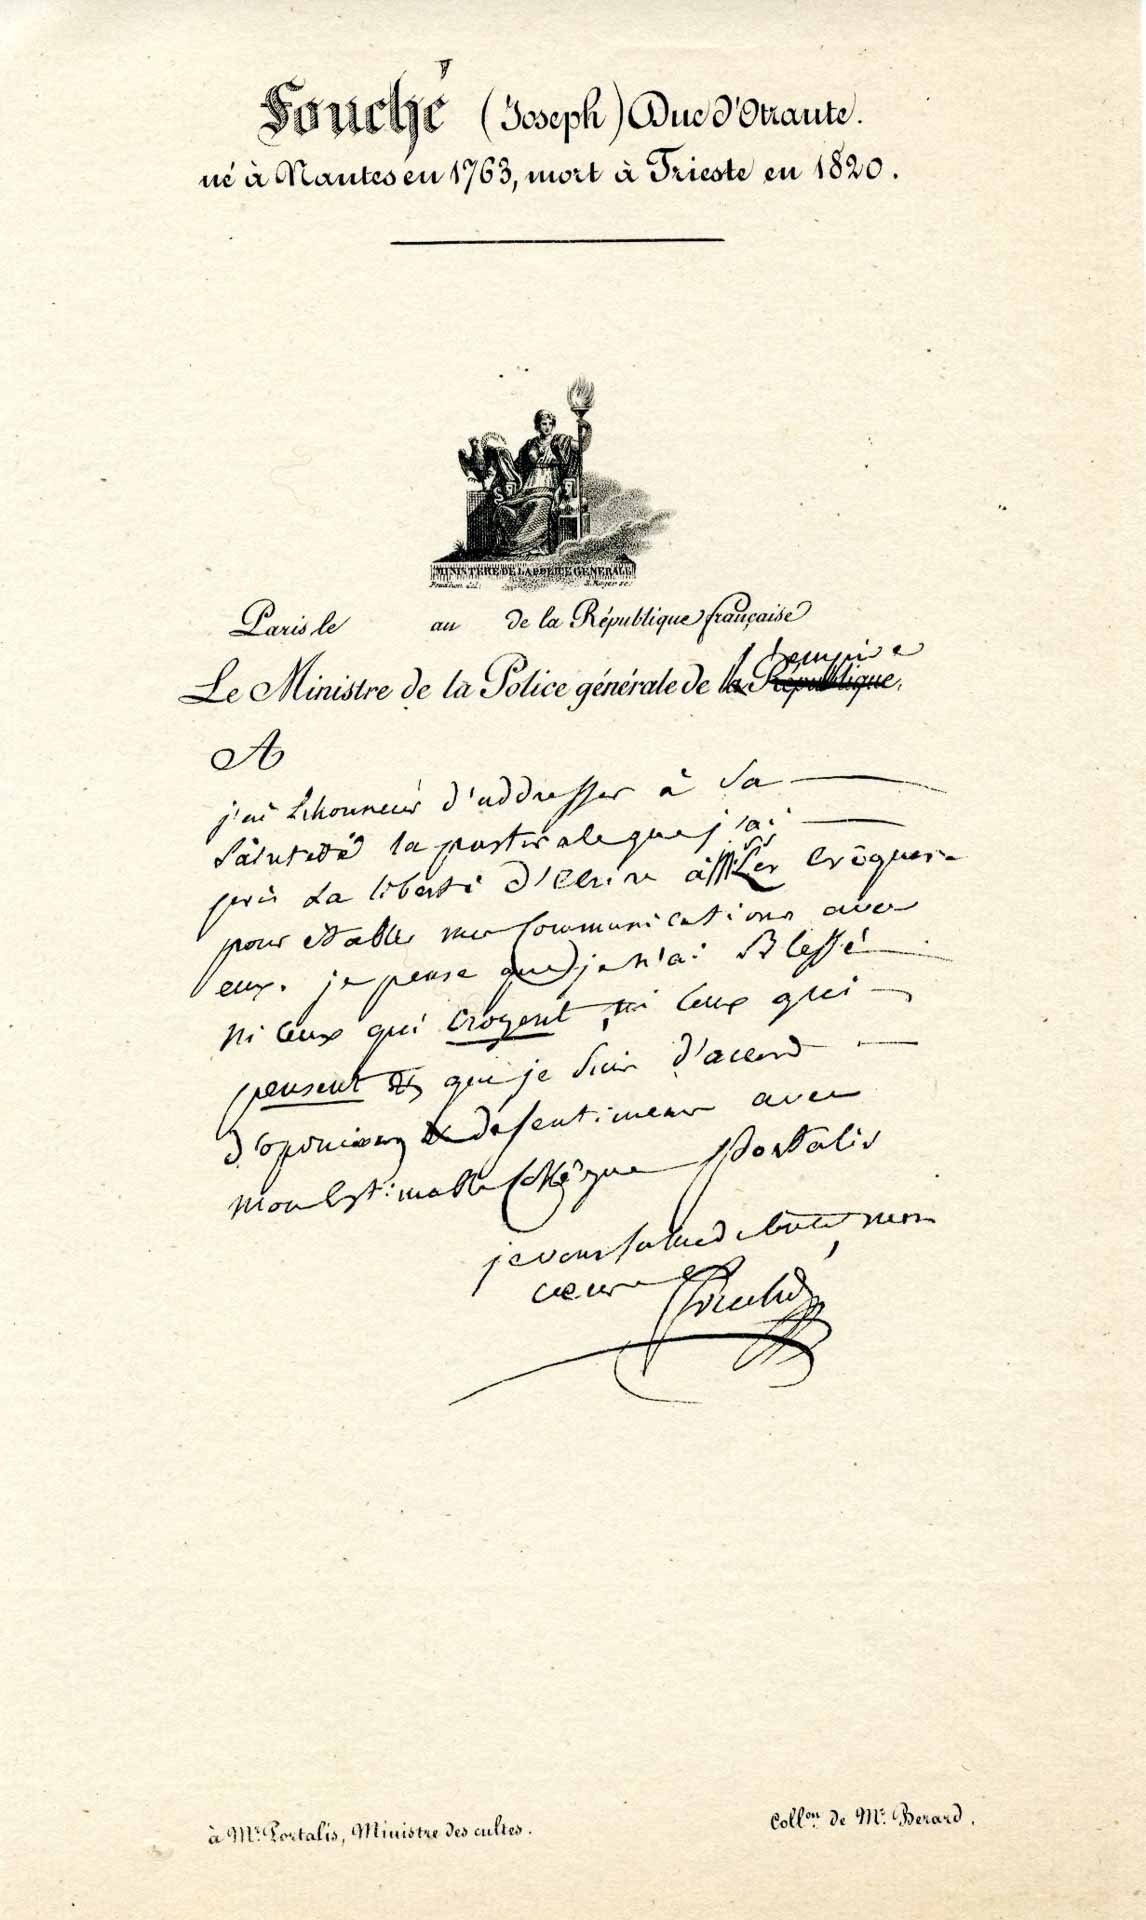 Fouché (Joseph) Duc d'Otrante.
né à Nantes en 1763, mort à Trieste en 1820.
MINISTERE DE LA POLICE GENERALE
Prudhon del. B. Roger sc.
Paris le an de la République française
Le Ministre de la Police générale de la République, l'empire
A
j'ai l'honneur d'addresser à Sa
Sainteté la pastorale que j'ai
pris la liberté d'Ecrire à Les Evêques
pour etablir mes Communications avec
eux. je pense que je n'ai Blessé
ni ceux qui croyent, ni ceux qui
pensent & que je suis d'accord
d'opinion & de sentimens avec
mon Estimable Collègue Portalis
je vous salue de tout mon
coeur
Fouché
à Mr. Portalis, Ministre des cultes.
Collon. de Mr. Berard.